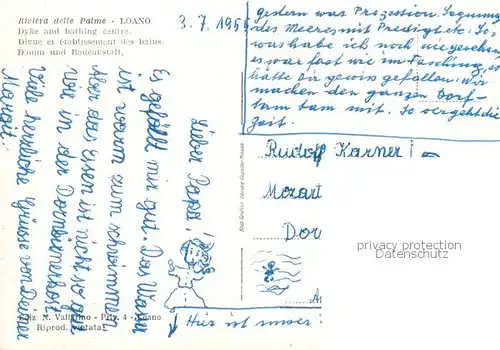 Riviera delle Palme - LOANO
Dyke and bathing centre.
Digue et établissement des bains.
Damm und Badenanstalt.
3.7.195
Lieber Papa!
Es gefällt mir gut. Das Wasser
ist warm zum schwimmen
Aber das Essen ist nicht so gut
wie in der Dornbirnerkost
Viele herzliche Grüsse von Deiner
gestern war Prozession, Segnung
des Meeres mit Predigt etc. So-
was habe ich noch nie gesehen
es war fast wie im Fasching, es
hätte dir gewiss gefallen. Wir
machen den ganzen Dorf-
tam tam mit. So vergeht die
Zeit.
Rudolf Karner
Mozart
Dor
privacy protection
Datenschutz
Hier ist unser
Ediz. N. Vallarino - Prig. 4 - Loano
Riprod. vietata